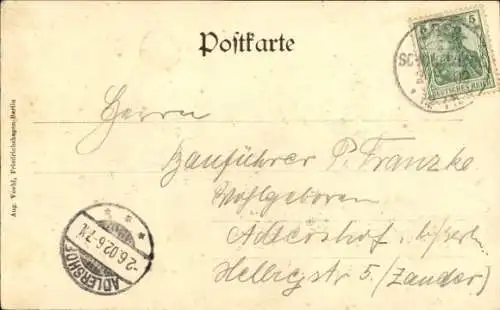 Postkarte
5 5
DEUTSCHES REICH
Herrn
Bauführer P. Franzke
Wohlgeboren
Adlershof b/Berl.
Helbigstr 5. (Zander)
-2.6.02.6-7N.
ADLERSHOF
Aug. Verhl, Friedrichshagen-Berlin